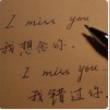 I miss you
我想念你.
I miss you.
我错过你.